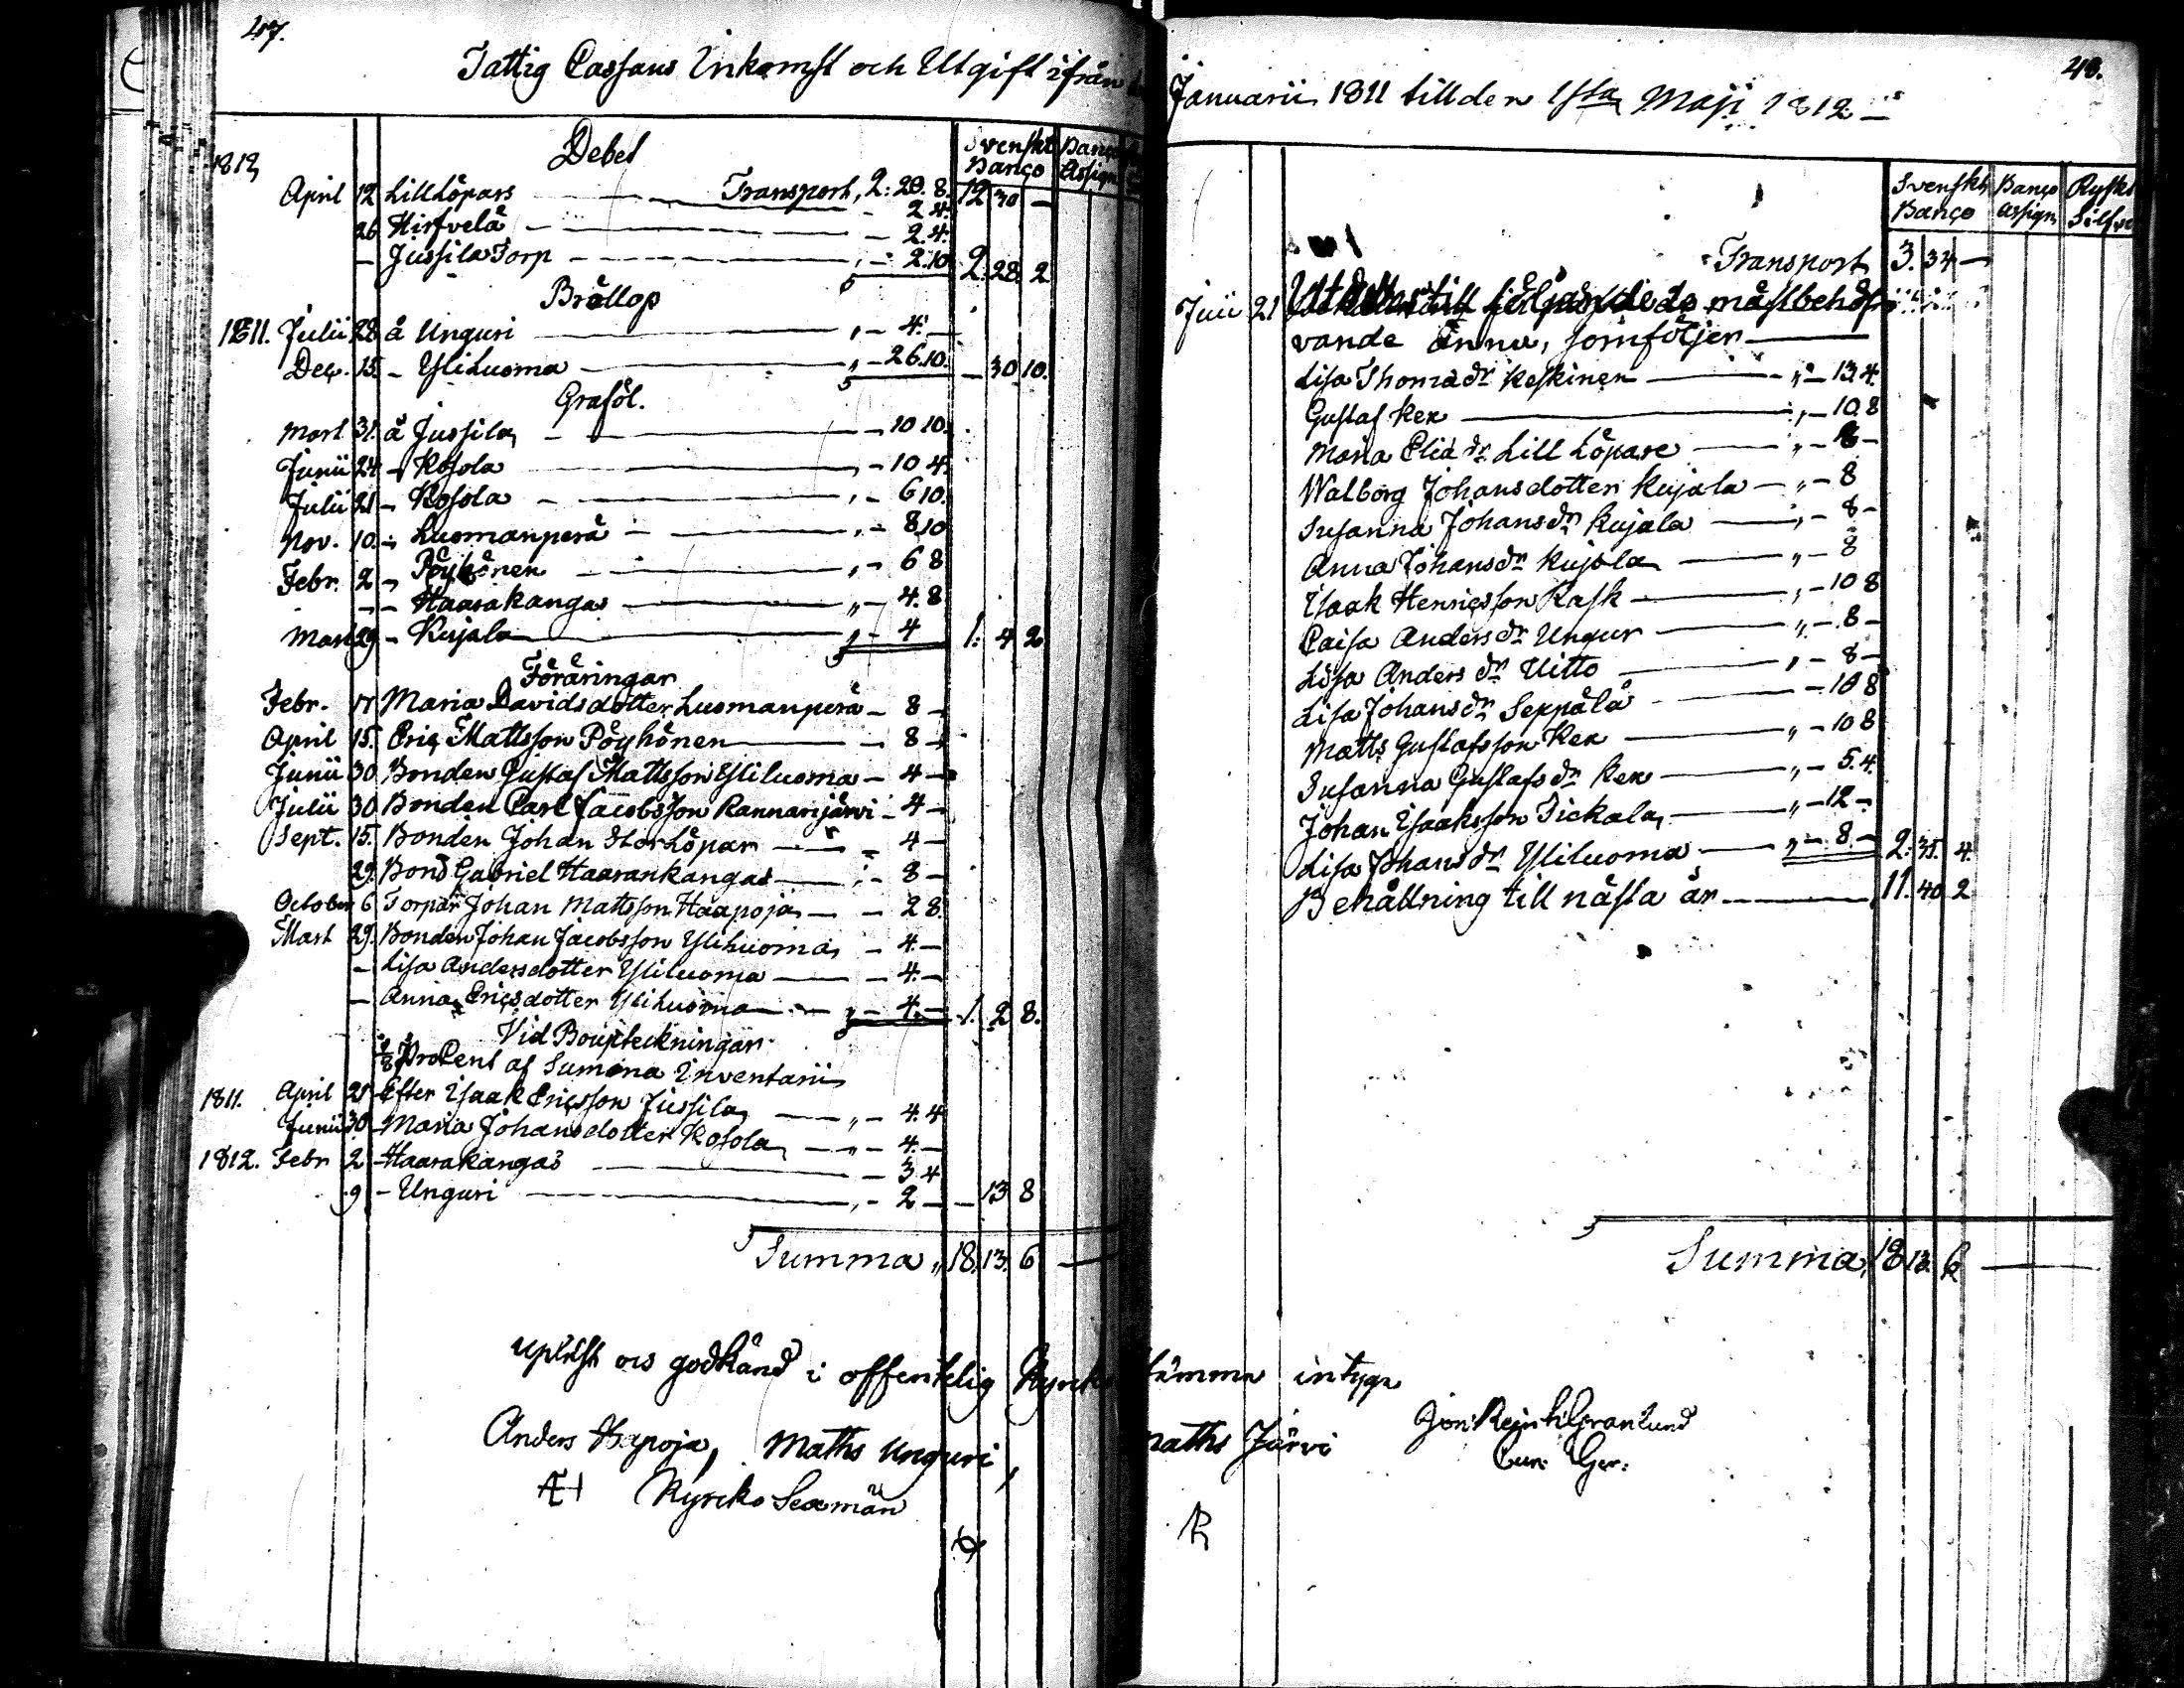 47.
Fattig Cassans Inkomst och Utgift ifrån
Debet
Svenskt Banco
Banco Assign
1812
April 12 Lill Löpars Transport, 2:20.8. 12 30 —
2 4.
26 Hirfvelä 2.4.
— Jussila Torp 2.10 2. 28. 2
Bröllop
1811. Julii 28 å Unguri 4.
Dec. 15. - Yliluoma 26.10. — 30 10.
Graföl.
Mart 31. å Jussila 10 10.
Junii 24 - Kosola 10 4.
Julii 21 - Kosola 6 10.
Nov. 10. - Luomanperä 8 10
Febr. 2 - Pöyhönen 6 8
- - Haarakangas 4. 8
Mart 29 - Kujala 4 1. 4 2
Föräringar
Febr. 17 Maria Davidsdotter Luomanperä — 8 —
April 15. Eric Mattsson Pöyhönen — 8 —
Junii 30 Bonden Gustaf Mattsson Yliluoma — 4 —
Julii 30 Bonden Carl Jacobsson Rannanjärvi — 4 —
Sept. 15. Bonden Johan Stor Löpar — 4 —
29. Bond Gabriel Haarankangas — 8 —
October 6 Torpar Johan Mattsson Haapoja — 2 8.
Mart 29. Bonden Johan Jacobsson Yliluoma — 4 —
— Lisa Andersdotter Yliluoma — 4. —
— Anna Ericsdotter Yliluoma — 4. — 1. 2 8.
Vid Boupteckningar
1/8 ProCent af Summa Inventarii
1811. April 21 Efter Isaak Ericsson Jussila 4. 4
Junii 30 - Maria Johansdotter Kosola 4. —
1812. Febr 2 - Haarakangas 3 4
9 - Unguri 2 — — 13 8
Summa „ 18. 13. 6 —
48.
Januarii 1811 till den 1sta Maji 1812
Svenskt Banco
Banco Assign
Ryskt Silfve
Transport 3. 34 —
21 måstbehöf
vande ännu, somföljer
Lisa Thomædr Keskinen „ — 13 4.
Gustaf Kex — 10. 8
Maria Eliædr Lill Löpare „ — 8 —
Walborg Johansdotter Kujala — „ — 8
Susanna Johansdr Kujala — 8 —
Anna Johansdr Kujala „ — 8
Isaak Henricsson Rask — 10 8
Caisa Andersdr Ungur „ — 8 —
Lisa Andersdr Uitto — 8 —
Lisa Johansdr Seppälä — 10 8
Matts Gustafsson Kex „ — 10 8
Susanna Gustafsdr Kex „ — 5. 4.
Johan Isaaksson Tickala „ — 12 —
Lisa Johansdr Yliluoma „ — 8. — 2. 35. 4.
Behållning till nästa år 11. 40 2
Summa 18 13. 6 —
Upläst ock godkänd i offentelig Kyrkostämma intyga
Anders Hapoja, Maths Unguri, Maths Järvi
Kyrcko Sexmän
Granlund